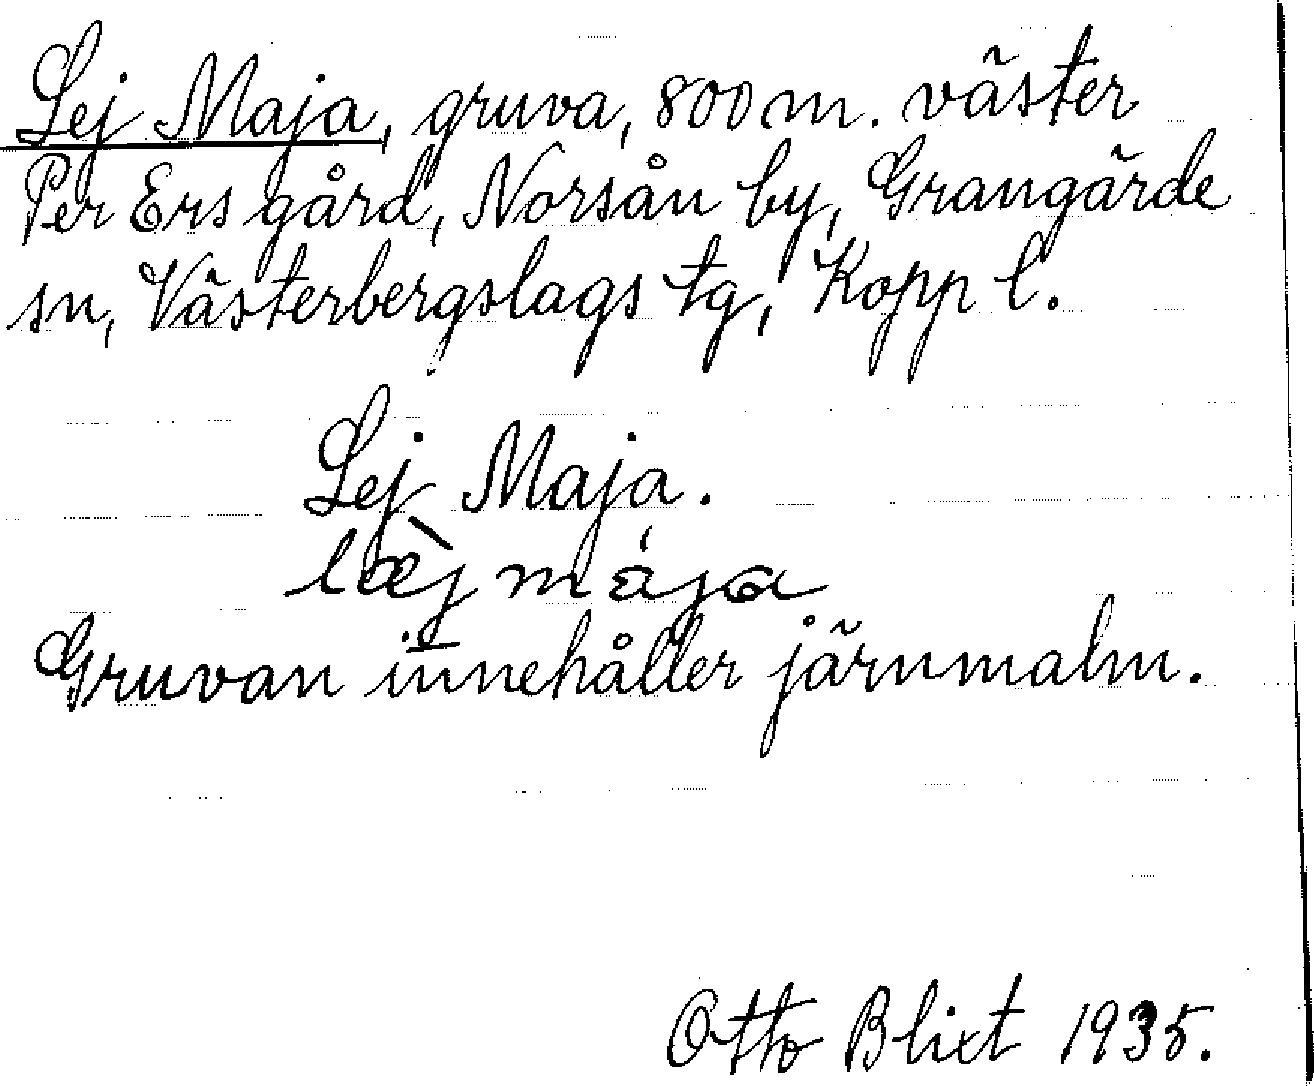 Lej Maja, gruva, 800 m. väster
Per Ers gård, Norsån by, Grangärde
sn, Västerbergslags tg, Kopp l.
Lej Maja.
læ̀j mája
Gruvan innehåller järnmalm.
Otto Blixt 1935.